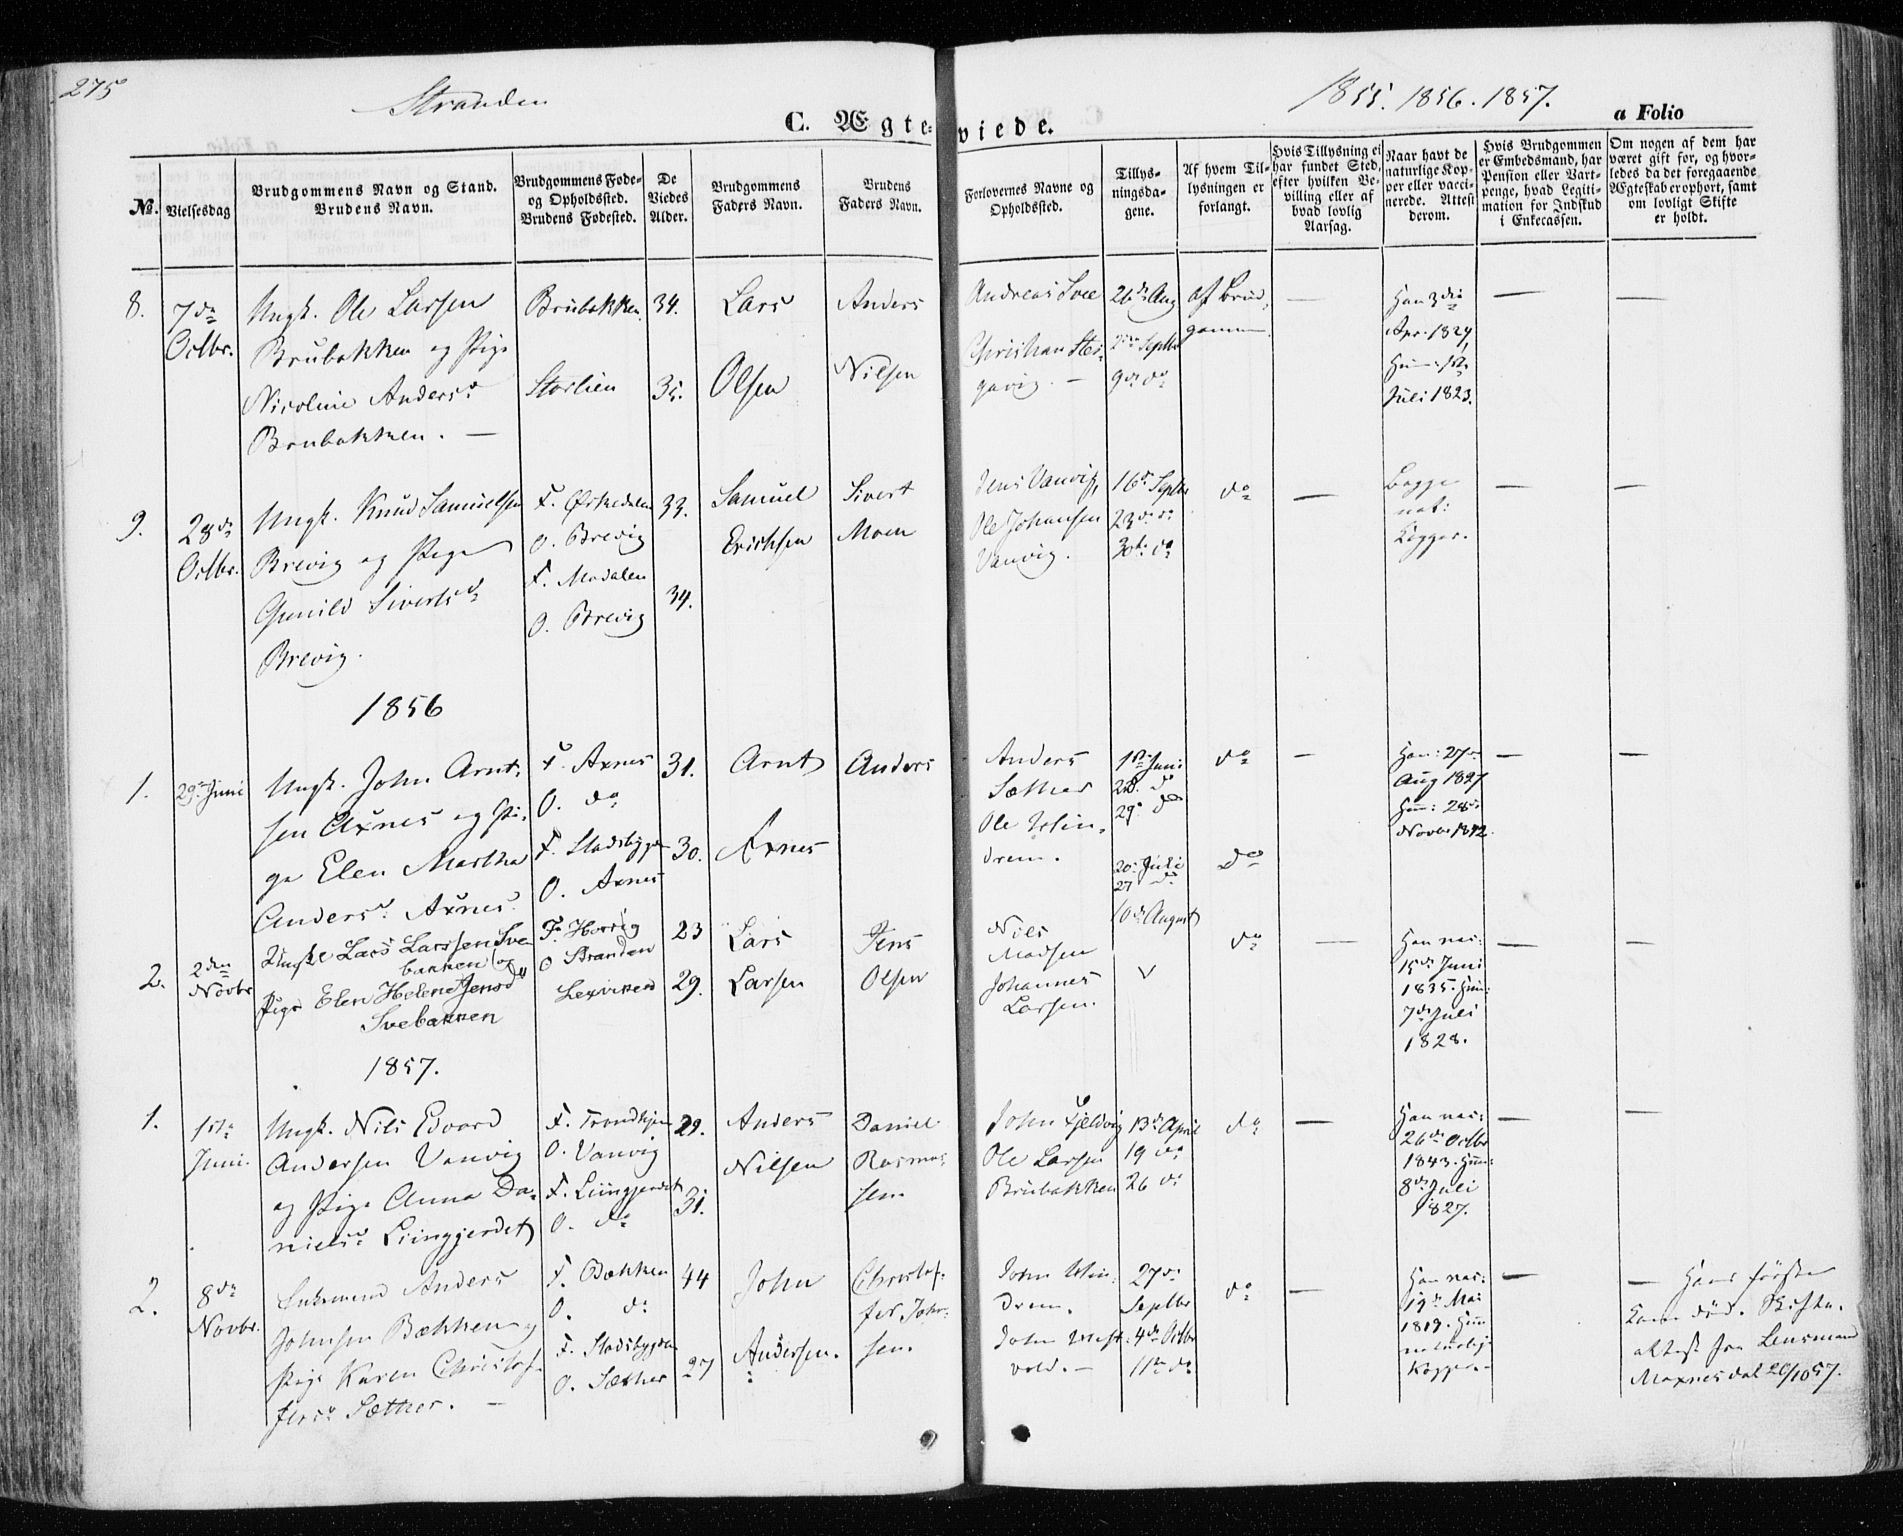 275
Stranden
1855. 1856. 1857.
a Folio
C. Ægte-viede.
No.
Vielsesdag
Brudgommens Navn og Stand.
Brudens Navn.
Brudgommens Føde-
og Opholdssted.
Brudens Fødested.
De
Viedes
Alder.
Brudgommens
Faders Navn.
Brudens
Faders Navn.
Forlovernes Navne og
Opholdssted.
Tillys-
ningsda-
gene.
Af hvem Til-
lysningen er
forlangt.
Hvis Tillysning ei
har fundet Sted,
efter hvilken Be-
villing eller af
hvad lovlig
Aarsag.
Naar havt de
naturlige Kop-
per eller vacci-
nerede. Attest
derom.
Hvis Brudgommen
er Embedsmand, har
Pension eller Vart-
penge, hvad Legiti-
mation for Indskud
i Enkecassen.
Om nogen af dem har
været gift før, og hvor-
ledes da det foregaaende
Ægteskab er ophørt, samt
om lovligt Skifte
er holdt.
8.
7de
Octbr.
Ungk. Ole Larsen
Brubakken og Pige
Nicoline Andersd
Brubakken. —
Brubakken
Storlien
34.
35.
Lars
Olsen
Anders
Nilsen
Andreas Svee
Christian Stei-
gavig. —
26de Aug
2den Septbr
9de do
af Brud-
gommen
—
Han 3die
Apr. 1824,
Hun: 
Juli 1823.
—
—
9.
28de
Octbr.
Ungk. Knud Samuelsen
Brevig og Pige
Gunild Sivertsd
Brevig.
F. Ørkedalen
O. Brevig
F. Modalen
O. Brevig
33.
34.
Samuel
Erichsen
Sivert
Moen
Jens Vanvig,
Ole Johansen
Vanvig.
16de Septbr
23de do
30te do
do
—
Begge
nat:
Kopper.
—
—
1856
1.
29de Juni
Ungk. John Arnt-
sen Axnes og Pi-
ge Elen Martha
Andersd. Axnes.
F. Axnes
O. do
F. Stadsbygden
O. Axnes
31.
30.
Arnt
Axnes
Anders
Anders
Sæther
Ole Win-
drem.
1ste Juni
22d. do
29. do
do
—
Han: 27de
Aug 1827
Hun: 28de
Novbr 1842.
—
—
2.
2den
Novbr
Ungke Lars Larssen Sve-
bakken og
Pige Elen Helene Jensd
Svebakken
F. Horvig
O Stranden
Lexviken
23
29.
Lars
Larsen
Jens
Olsen
Nils
Madsen
Johannes
Larsen.
20. Juli
27 do
10de August
do
do
—
Han vac:
15de Juni
1835. Hun:
7de Juli
1828.
—
—
1857.
1.
1ste
Juni.
Ungk. Nils Edvard
Andersen Vanvig
og Pige Anna Da-
nielsd. Liingjerdet
F. Trondhjem
O. Vanvig
F. Liingjerdet
O. do
29.
31.
Anders
Nilsen
Daniel
Rasmus-
sen.
John Fjeldvig
Ole Larsen
Brubakken
13de April
19 do
26 do
do
—
Han vac:
26de Octbr
1843. Hun:
8de Juli
1827.
—
—
2.
8de
Novbr.
Enkemand Anders
Johnsen Bækken og
Pige Karen Christof-
fersd Sæther. —
F. Bækken
O. do
F. Stadsbygden
O. Sæther
44
27
John
Andersen.
Christof-
fer John-
sen.
John Win-
drem.
John West-
vold. —
27de
Septbr
4de Octbr
11te do
do
—
Han vac:
19de Mai
1819. Hun
naturlige
Kopper. —
—
— Hans første
Kone død. Skifte-
attest fra Lensmand
Moxnes dat 20/10 57.